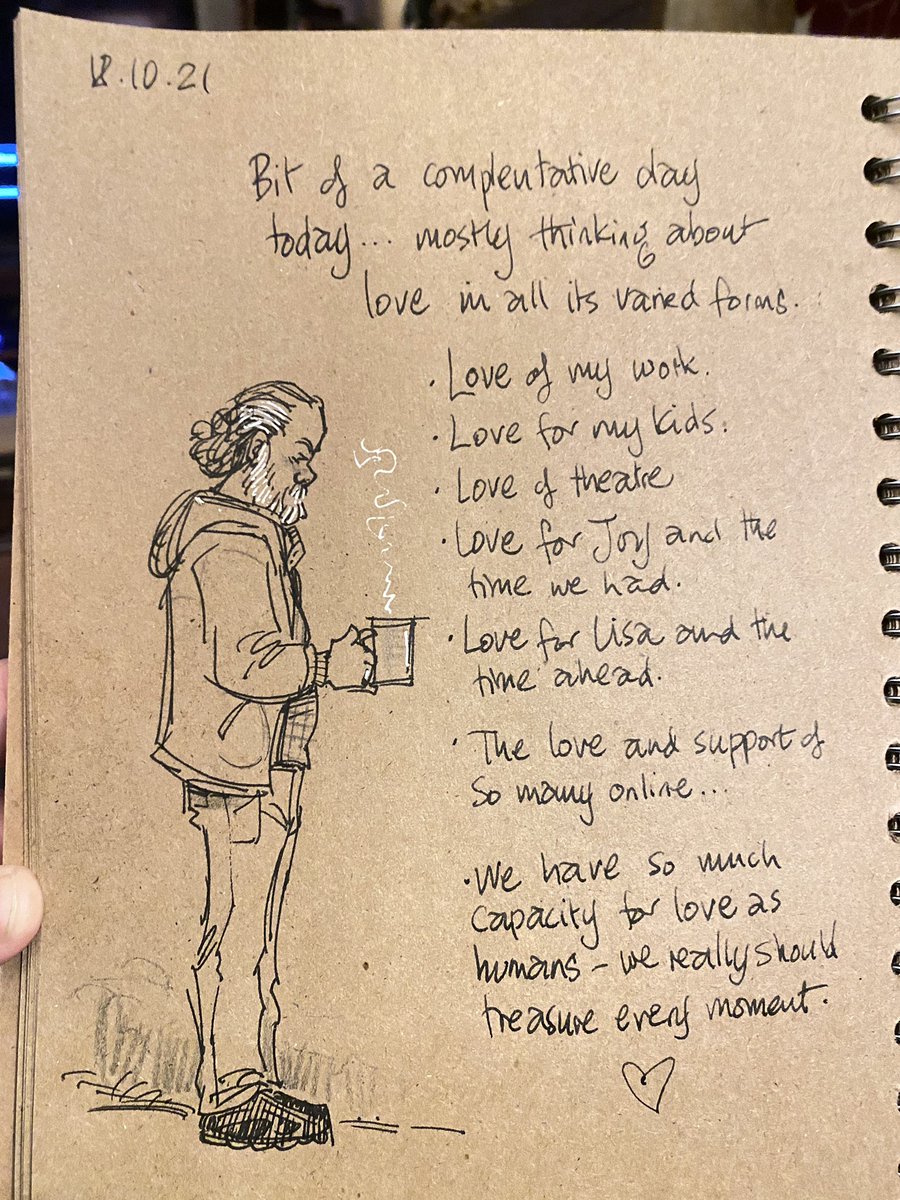 18.10.21
Bit of a complentative day
today... mostly thinking about
love in all its varied forms.
· Love of my work.
· Love for my kids.
· Love of theatre
· Love for Joy and the
time we had.
· Love for Lisa and the
time ahead.
· The love and support of
so many online...
· We have so much
capacity for love as
humans – we really should
treasure every moment.